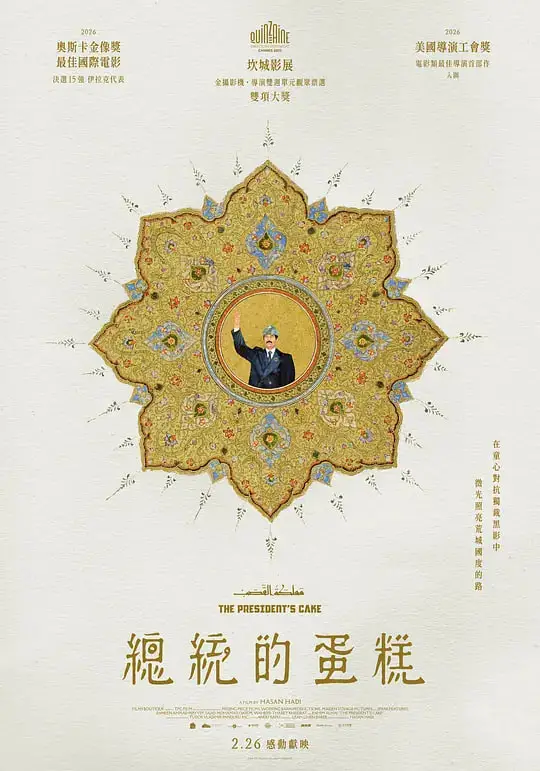 2026
奧斯卡金像獎
最佳國際電影
決選15強 伊拉克代表
QUINZAINE
坎城影展
金攝影機・導演雙週單元觀眾票選
雙項大獎
2026
美國導演工會獎
電影類最佳導演首部作
入圍
在童心對抗獨裁黑影中
微光照亮荒城國度的路
مملكة القصب
THE PRESIDENT'S CAKE
總統的蛋糕
A FILM BY HASAN HADI
2.26 感動獻映